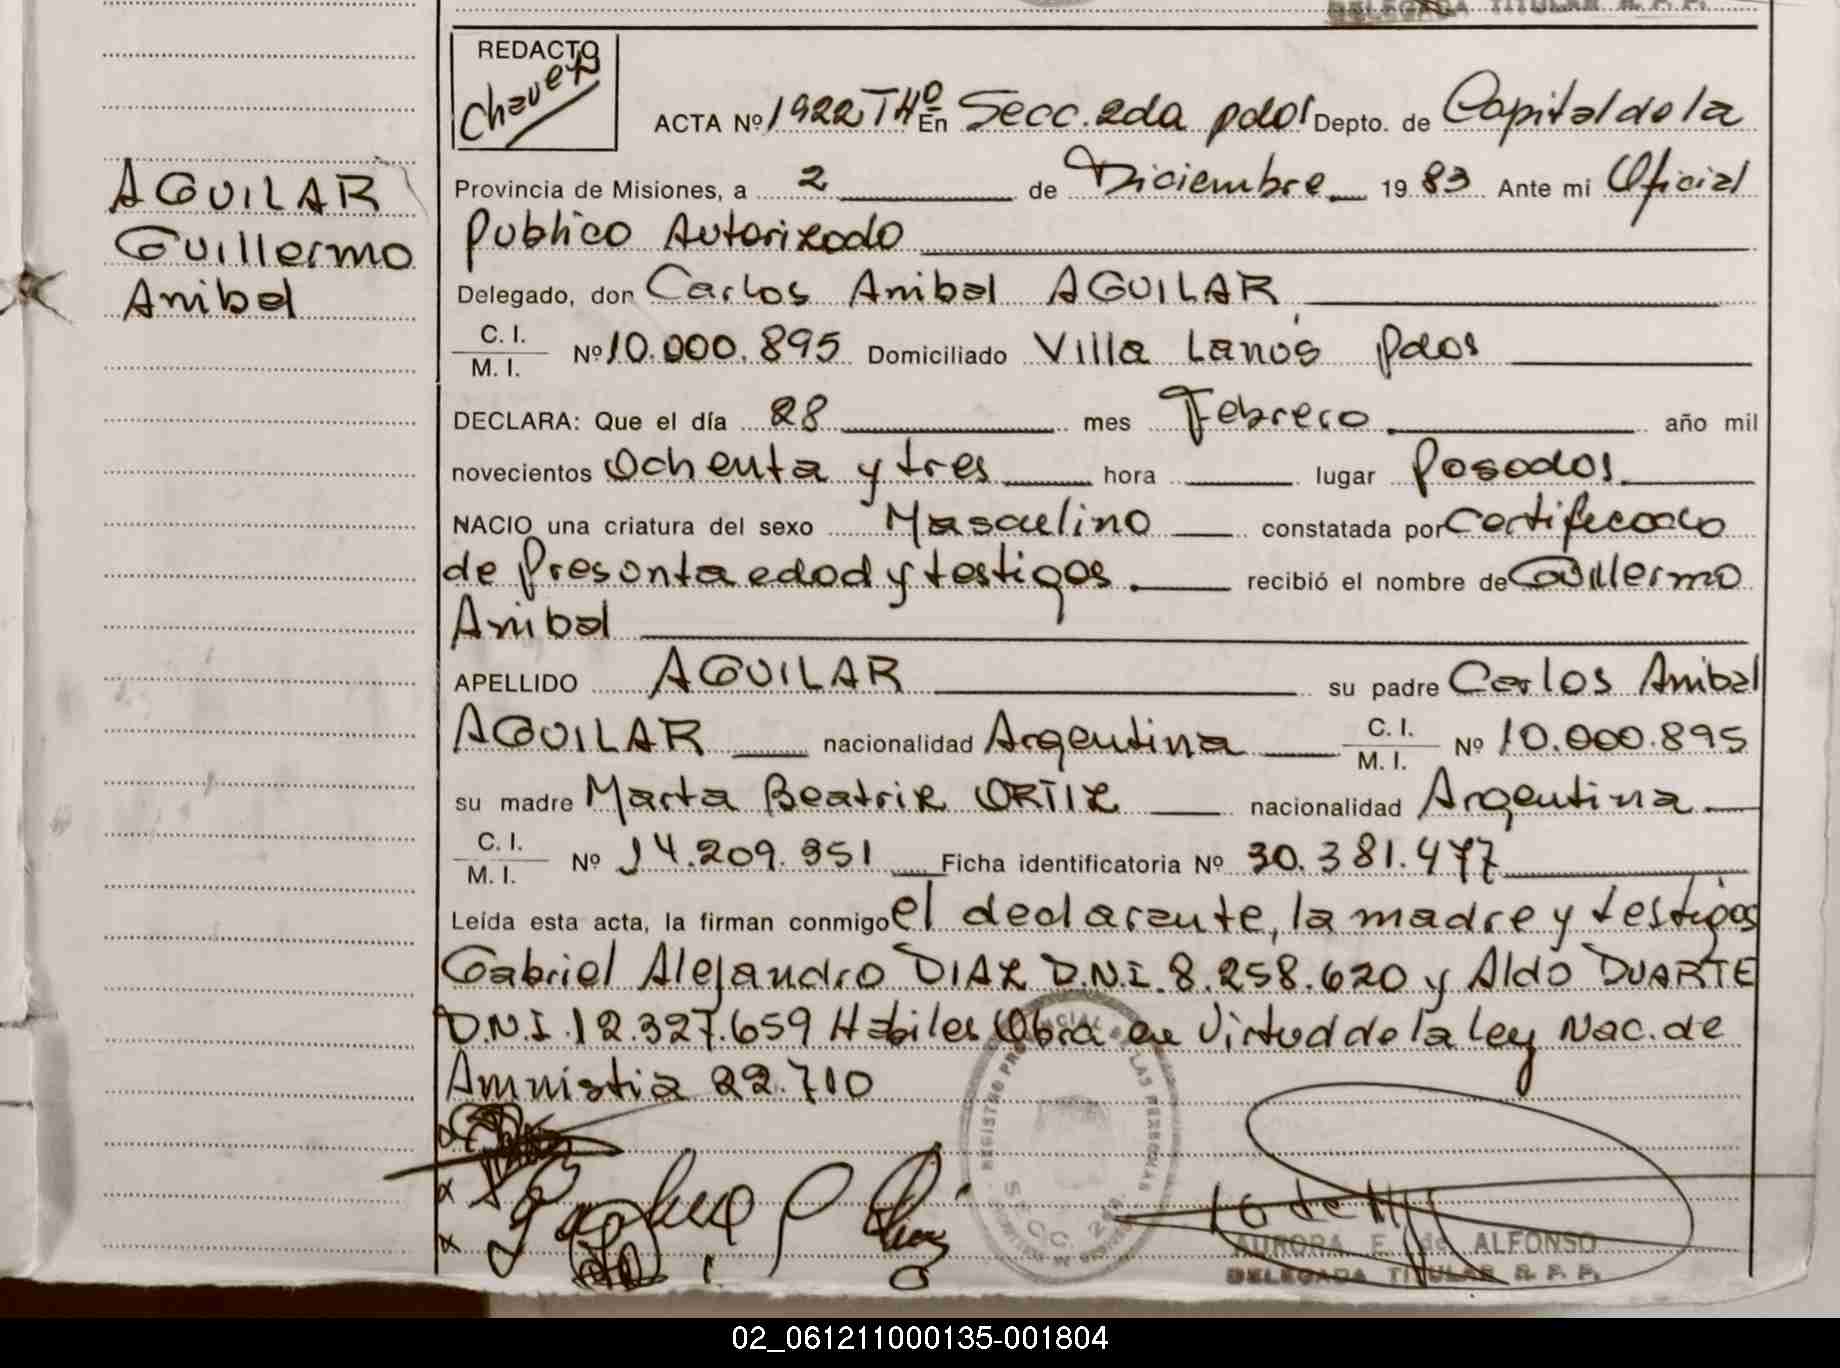 DELEGADA TITULAR R. P. P.
REDACTO
Chavez
ACTA Nº 1922 THº En Secc. 2da pdas Depto. de Capital de la
AGUILAR
Provincia de Misiones, a 2 de Diciembre 19 83 Ante mi Oficial
Guillermo
Publico Autorizado
Anibal
Delegado, don Carlos Anibal AGUILAR
C. I.
M. I.
Nº 10.000.895 Domiciliado Villa Lanús pdas
DECLARA: Que el día 28 mes Febrero año mil
novecientos Ochenta y tres hora lugar Posadas
NACIO una criatura del sexo Masculino constatada por Certificado
de Presonta edad y testigos recibió el nombre de Guillermo
Anibal
APELLIDO AGUILAR su padre Carlos Anibal
AGUILAR nacionalidad Argentina C. I. M. I. Nº 10.000.895
su madre Marta Beatriz ORTIZ nacionalidad Argentina
C. I.
M. I.
Nº 14.209.351 Ficha identificatoria Nº 30.381.477
Leída esta acta, la firman conmigo el declarante, la madre y testigos
Gabriel Alejandro DIAZ D.N.I. 8.258.620 y Aldo DUARTE
D.N.I. 12.327.659 Habiles Obra en Virtud de la ley Nac. de
Amnistia 22.710
REGISTRO PROVINCIAL DE LAS PERSONAS
SECC. 2da.
AURORA E. de ALFONSO
DELEGADA TITULAR R. P. P.
02_061211000135-001804